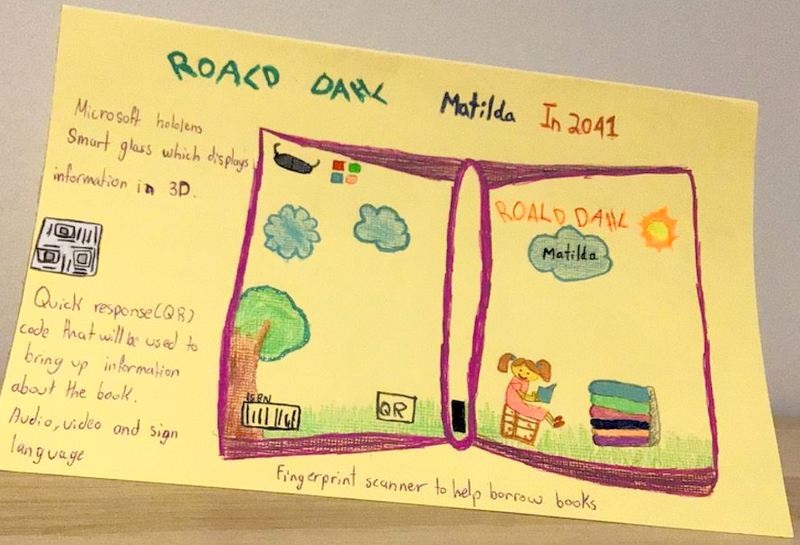 ROALD DAHL Matilda In 2041
Microsoft hololens
Smart glass which displays
information in 3D.
Quick response(QR)
code that will be used to
bring up information
about the book.
Audio, video and sign
language
ISBN
QR
ROALD DAHL
Matilda
Fingerprint scanner to help borrow books